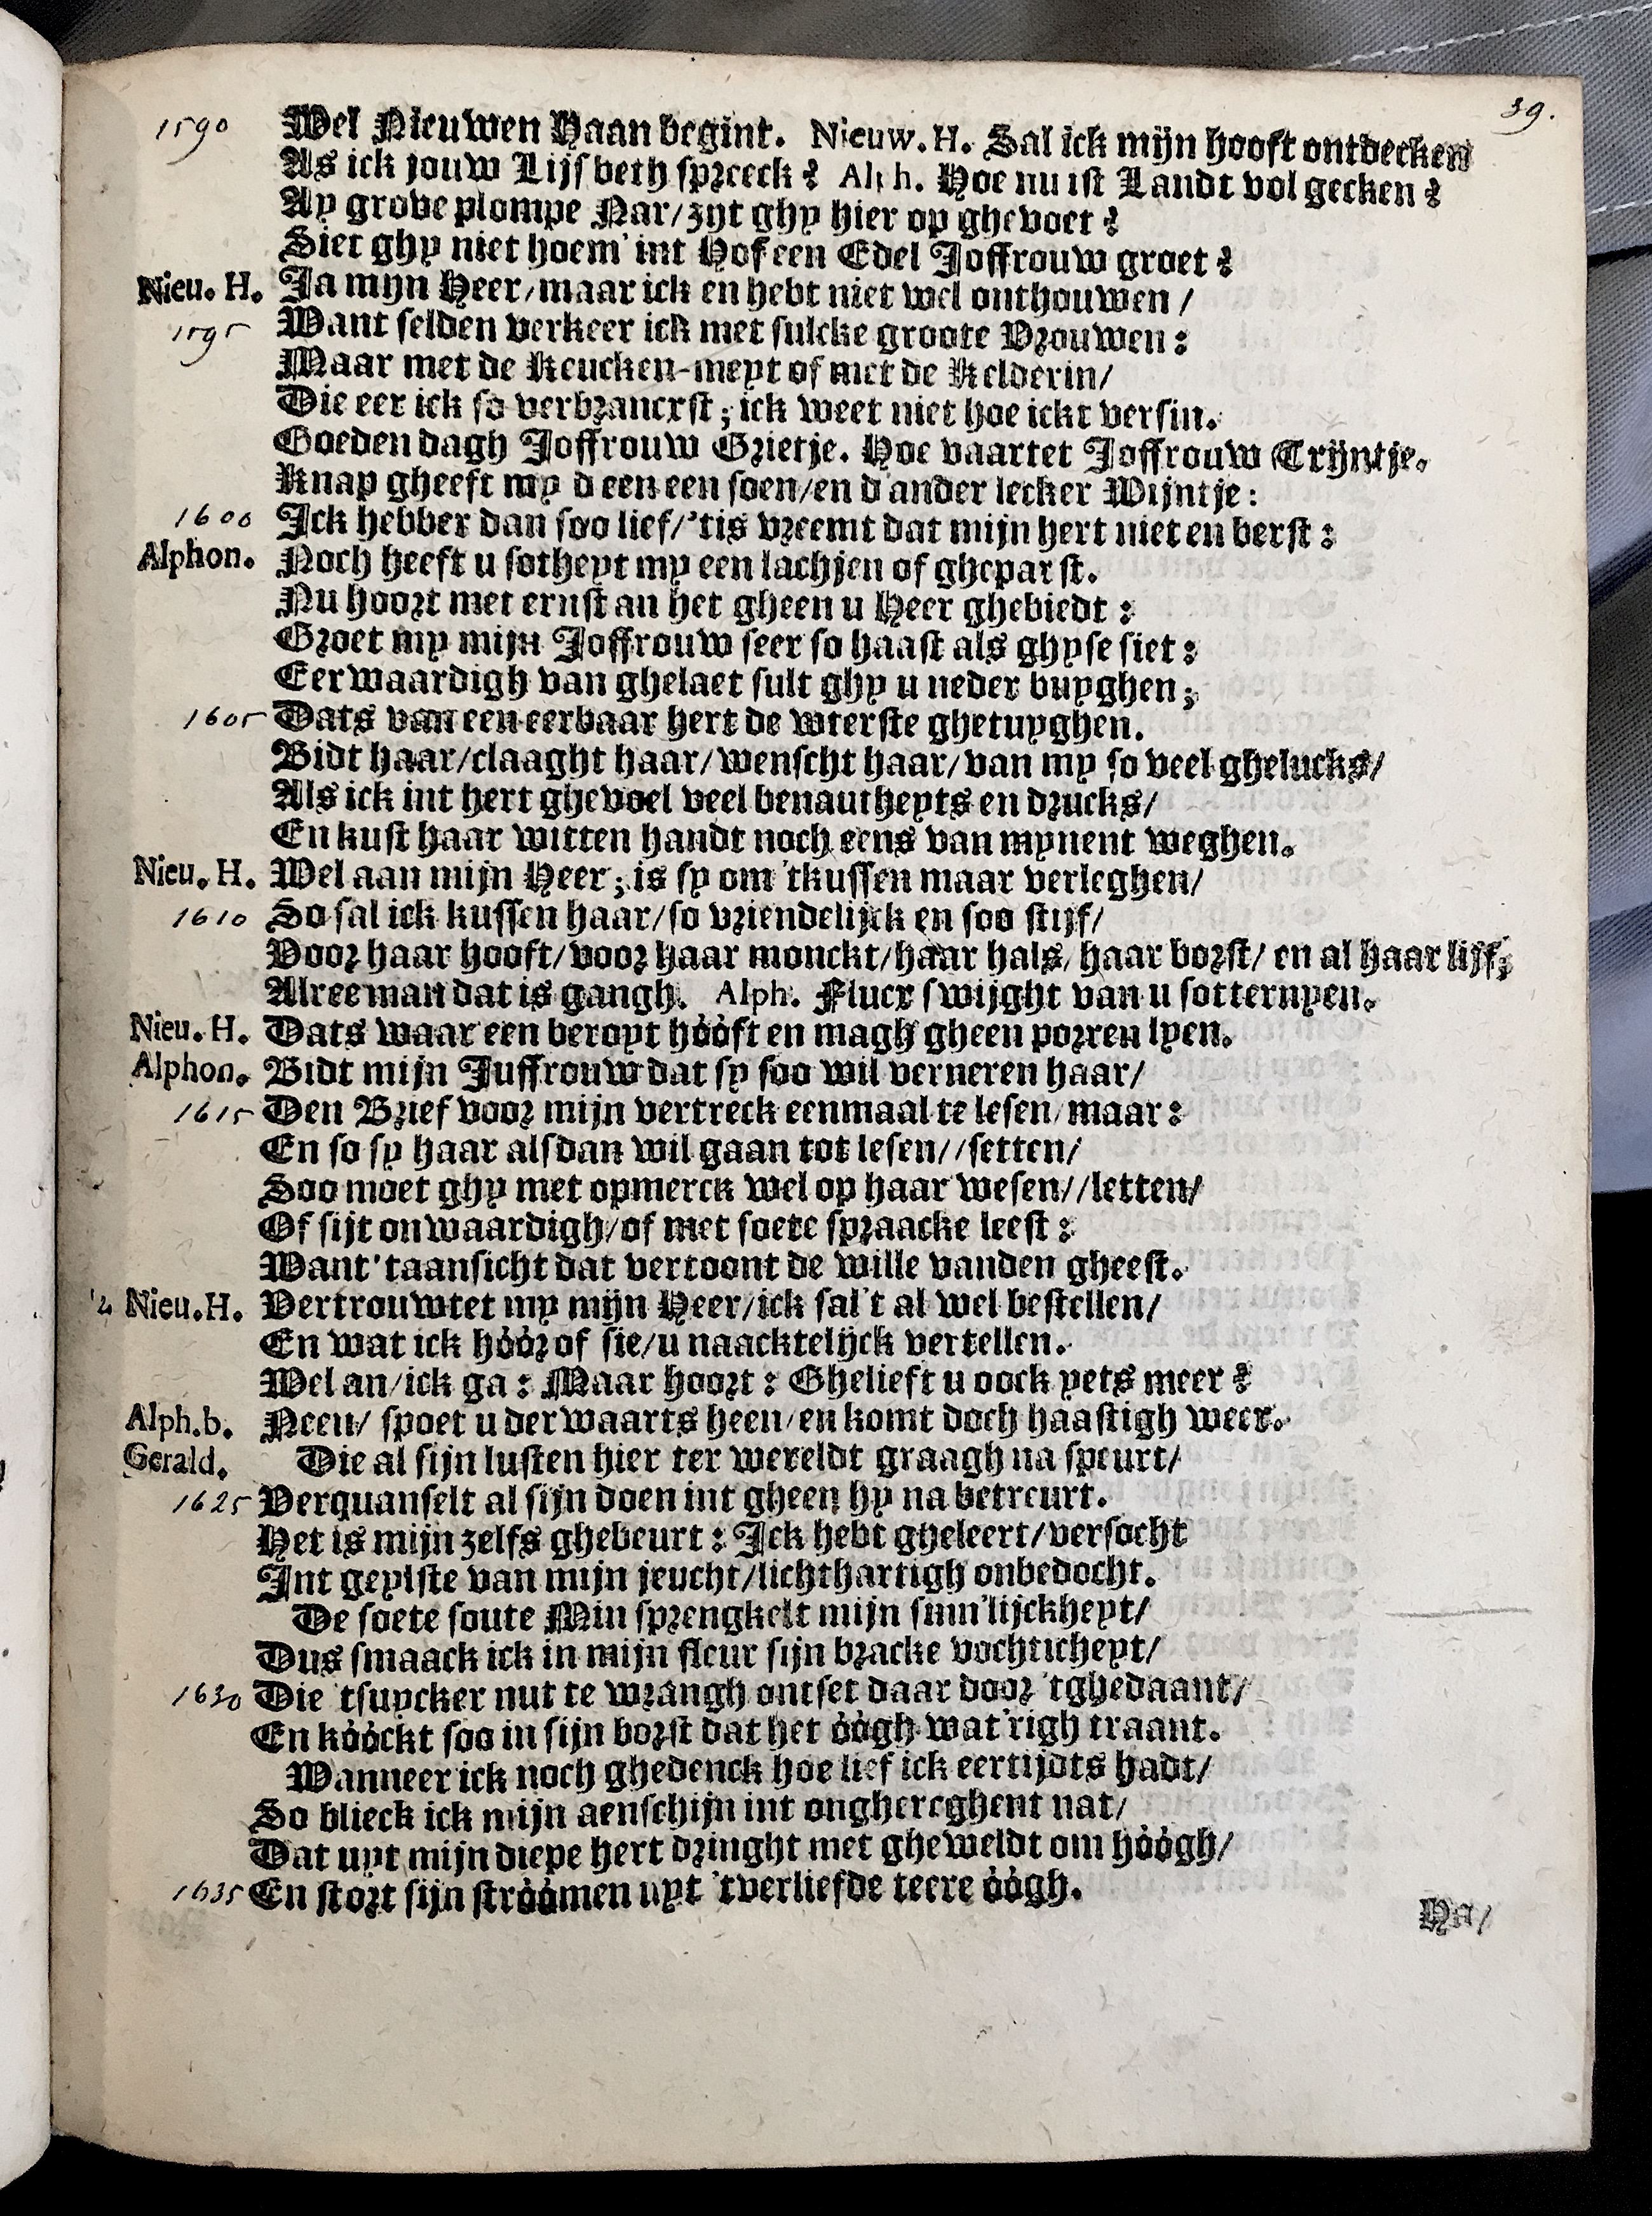 39.
1590 Wel Nieuwen Haan begint. Nieuw. H. Sal ick mijn hooft ontdecken
As ick jouw Lijsbeth spreeck? Alph. Hoe nu ist Landt vol gecken?
Ay grove plompe Nar/ zyt ghy hier op ghevoet?
Siet ghy niet hoem' int Hof een Edel Joffrouw groet?
Nieu. H. Ja myn Heer/ maar ick en hebt niet wel onthouwen/
1595 Want selden verkeer ick met sulcke groote Vrouwen:
Maar met de Keucken-meyt of met de Kelderin/
Die eer ick so verbrancxst; ick weet niet hoe ickt versin.
Goeden dagh Joffrouw Grietje. Hoe vaartet Joffrouw Trijntje.
Knap gheeft my d een een soen/ en d'ander lecker Wijntje:
1600 Ick hebber dan soo lief/ 'tis vreemt dat mijn hert niet en berst:
Alphon. Noch heeft u sotheyt my een lachjen of ghepar st.
Nu hoort met ernst an het gheen u Heer ghebiedt:
Groet my mijn Joffrouw seer so haast als ghyse siet:
Eerwaardigh van ghelaet sult ghy u neder buyghen;
1605 Dats van een eerbaar hert de wterste ghetuyghen.
Bidt haar/ claaght haar/ wenscht haar/ van my so veel ghelucks/
Als ick int hert ghevoel veel benautheyts en drucks/
En kust haar witten handt noch eens van mynent weghen.
Nieu. H. Wel aan mijn Heer; is sy om 'tkussen maar verleghen/
1610 So sal ick kussen haar/ so vriendelijck en soo stijf/
Voor haar hooft/ voor haar monckt/ haar hals/ haar borst/ en al haar lijf;
Alree man dat is gangh. Alph. Flucx swijght van u sotternyen.
Nieu. H. Dats waar een beroyt hóóft en magh gheen porren lyen.
Alphon. Bidt mijn Juffrouw dat sy soo wil verneren haar/
1615 Den Brief voor mijn vertreck eenmaal te lesen/ maar:
En so sy haar alsdan wil gaan tot lesen//setten/
Soo moet ghy met opmerck wel op haar wesen//letten/
Of sijt onwaardigh/ of met soete spraacke leest:
Want 'taansicht dat vertoont de wille vanden gheest.
Nieu. H. Vertrouwtet my mijn Heer/ ick sal't al wel bestellen/
En wat ick hóór of sie/ u naacktelijck vertellen.
Wel an/ ick ga: Maar hoort: Ghelieft u oock yets meer?
Alph.b. Neen/ spoet u derwaarts heen/ en komt doch haastigh weer.
Gerald. Die al sijn lusten hier ter wereldt graagh na speurt/
1625 Verquanselt al sijn doen int gheen hy na betreurt.
Het is mijn zelfs ghebeurt: Ick hebt gheleert/ versocht
Int geylste van mijn jeucht/ lichthartigh onbedocht.
De soete soute Min sprengkelt mijn sinn'lijckheyt/
Dus smaack ick in mijn fleur sijn bracke vochticheyt/
1630 Die 'tsuycker nut te wrangh ontset daar door 'tghedaant/
En kóóckt soo in sijn borst dat het óógh wat'righ traant.
Wanneer ick noch ghedenck hoe lief ick eertijdts hadt/
So blieck ick mijn aenschijn int onghereghent nat/
Dat uyt mijn diepe hert dringht met gheweldt om hóógh/
1635 En stort sijn stróómen uyt 'tverliefde teere óógh.
Ha/